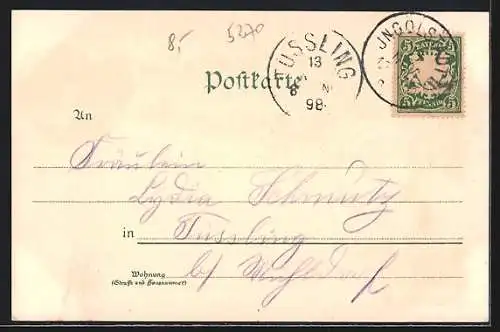 8,- 5270
USSLING
13
8 N
98
JNGOLS
BAYERN
5 PFENNIG 5
Postkarte
An
Fräulein
Lydia Schmutz
in Tussling
b/ Mühldorf
Wohnung
(Straße und Hausnummer)